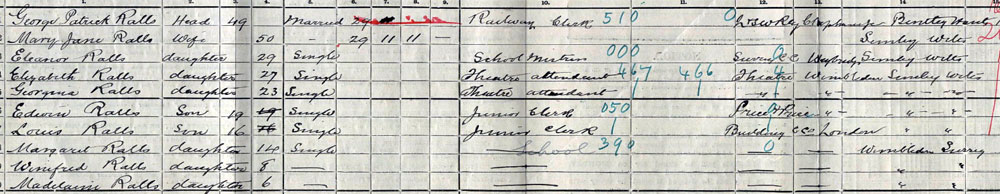 10. 11. 12. 13. 14.
George Patrick Ralls Head 49 Married Railway Clerk 510 0 Bentley Hants
Mary Jane Ralls Wife 50 — 29 11 11 — Semley Wilts
Eleanor Ralls daughter 29 Single School Mistress 000 0 Surrey C C Weybridge Semley Wilts
Elizabeth Ralls daughter 27 Single Theatre attendant 467 466 4 Theatre Wimbledon Semley Wilts
Georgina Ralls daughter 23 Single Theatre attendant
Edwin Ralls Son 19 Single Junior Clerk 050
Louis Ralls Son 16 Single Junior Clerk London
Margaret Ralls daughter 14 Single School 390 0 Wimbledon Surrey
Winifred Ralls daughter 8 —
Madelaine Ralls daughter 6 —